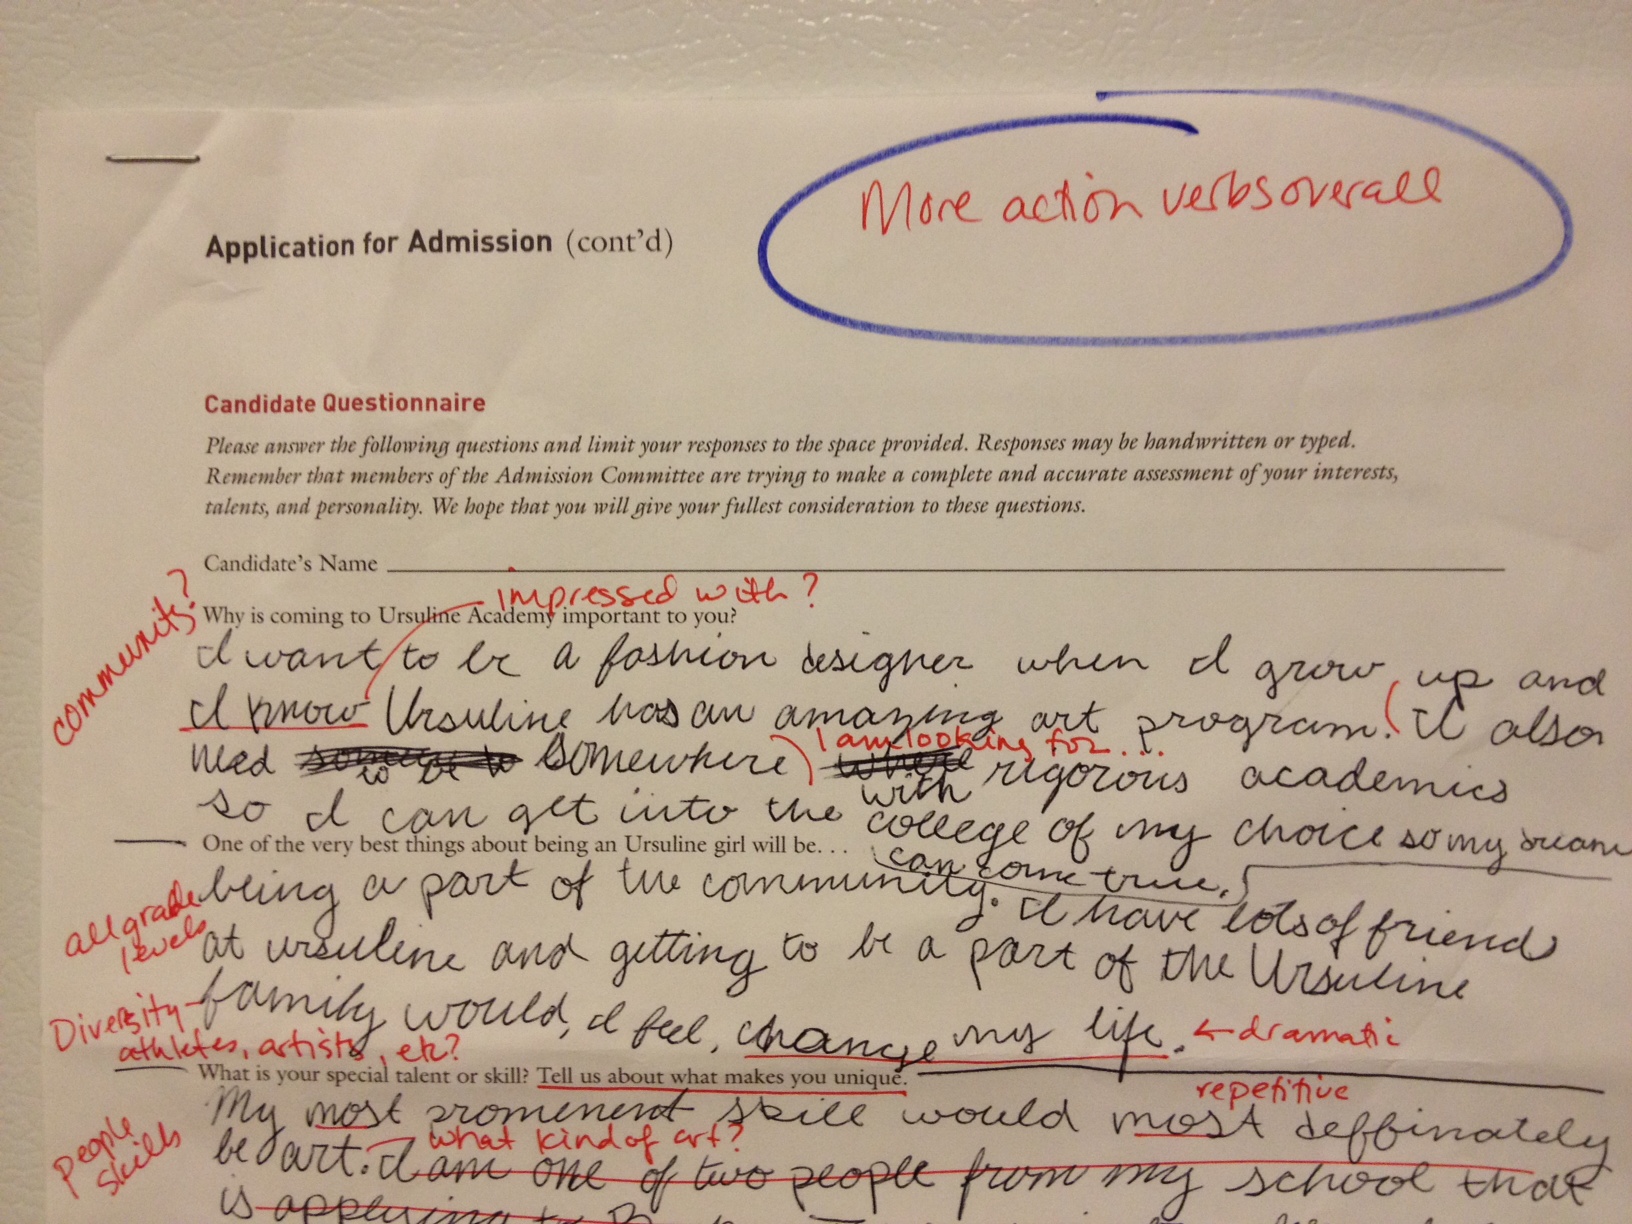 More action verbs overall
Application for Admission (cont'd)
Candidate Questionnaire
Please answer the following questions and limit your responses to the space provided. Responses may be handwritten or typed.
Remember that members of the Admission Committee are trying to make a complete and accurate assessment of your interests,
talents, and personality. We hope that you will give your fullest consideration to these questions.
Candidate's Name
community?
impressed with?
Why is coming to Ursuline Academy important to you?
I want to be a fashion designer when I grow up and
I know Ursuline has an amazing art program. I also
I am looking for....
need somewhere rigorous academics
to be with
so I can get into the college of my choice so my dream
One of the very best things about being an Ursuline girl will be...
can come true.
all grade
levels
being a part of the community. I have lots of friend
at ursuline and getting to be a part of the Ursuline
Diversity-
athletes, artists, etc?
family would, I feel, change my life.
←dramatic
What is your special talent or skill? Tell us about what makes you unique.
repetitive
people
skills
My most promenent skill would most deffinately
what kind of art?
be art. I am one of two people from my school that
is applying to